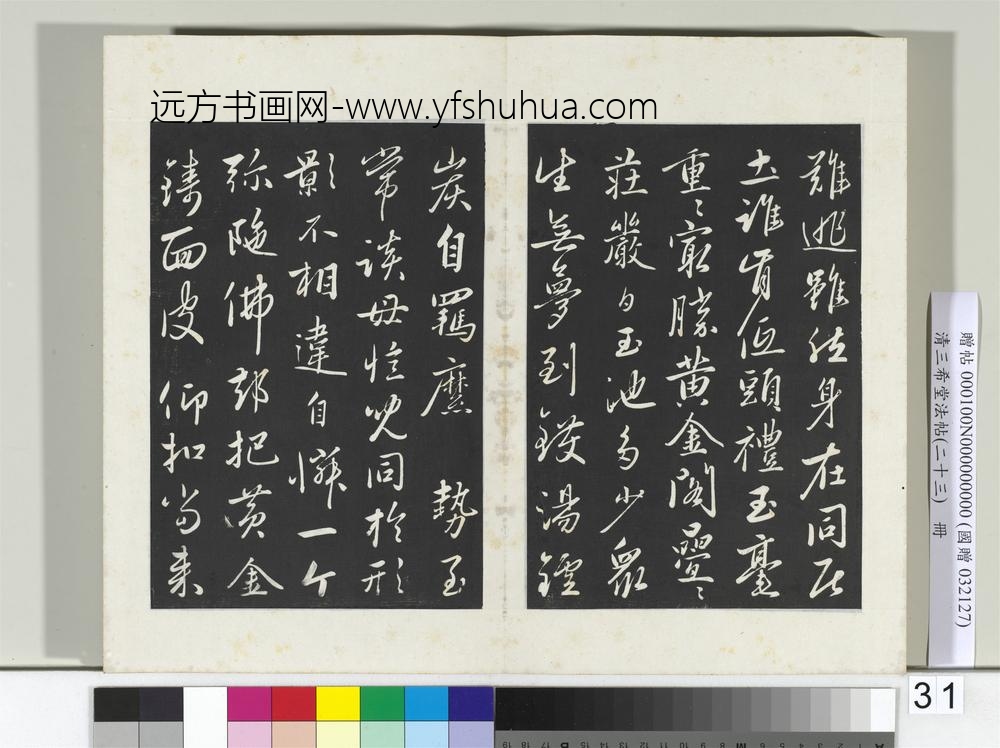 远方书画网-www.yfshuhua.com
難逃雖然身在同居
土誰肯低頭禮玉毫
重〻冣勝黄金閣疊〻
莊嚴白玉池多少眾
生無夢到鑊湯鑪
炭自羈縻 勢至
常談母憶兒同於形
影不相違自憐一个
弥陁佛却把黄金
鑄面皮 仰扣當来
贈帖 000100N000000000 (國贈 032127)
清三希堂法帖(二十三) 冊
31